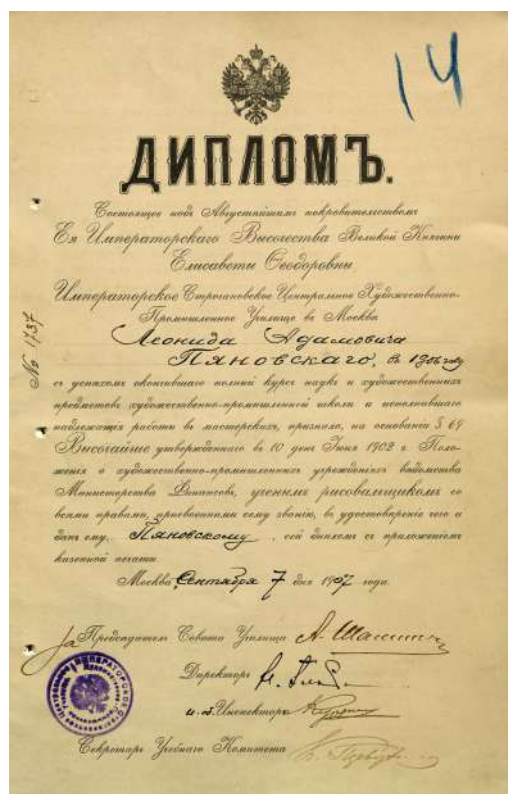 14
ДИПЛОМЪ.
Состоящее подъ Августѣйшимъ покровительствомъ
Ея Императорскаго Высочества Великой Княгини
Елисаветы Ѳеодоровны
Императорское Строгановское Центральное Художественно-
Промышленное Училище въ Москвѣ
Леонида Адамовича
Пяновскаго, въ 1906 году
съ успѣхомъ окончившаго полный курсъ наукъ и художественныхъ
предметовъ художественно-промышленной школы и исполнившаго
надлежащія работы въ мастерскихъ, признало, на основаніи § 69
Высочайше утвержденнаго въ 10 день Іюня 1902 г. Поло-
женія о художественно-промышленныхъ учрежденіяхъ вѣдомства
Министерства Финансовъ, ученымъ рисовальщикомъ со
всѣми правами, присвоенными сему званію, въ удостовѣреніе чего и
данъ ему, Пяновскому, сей дипломъ съ приложеніемъ
казенной печати.
Москва, Сентября 7 дня 1907 года.
№ 1737
За Предсѣдатель Совѣта Училища
Директоръ
и. об. Инспектора
Секретарь Учебнаго Комитета